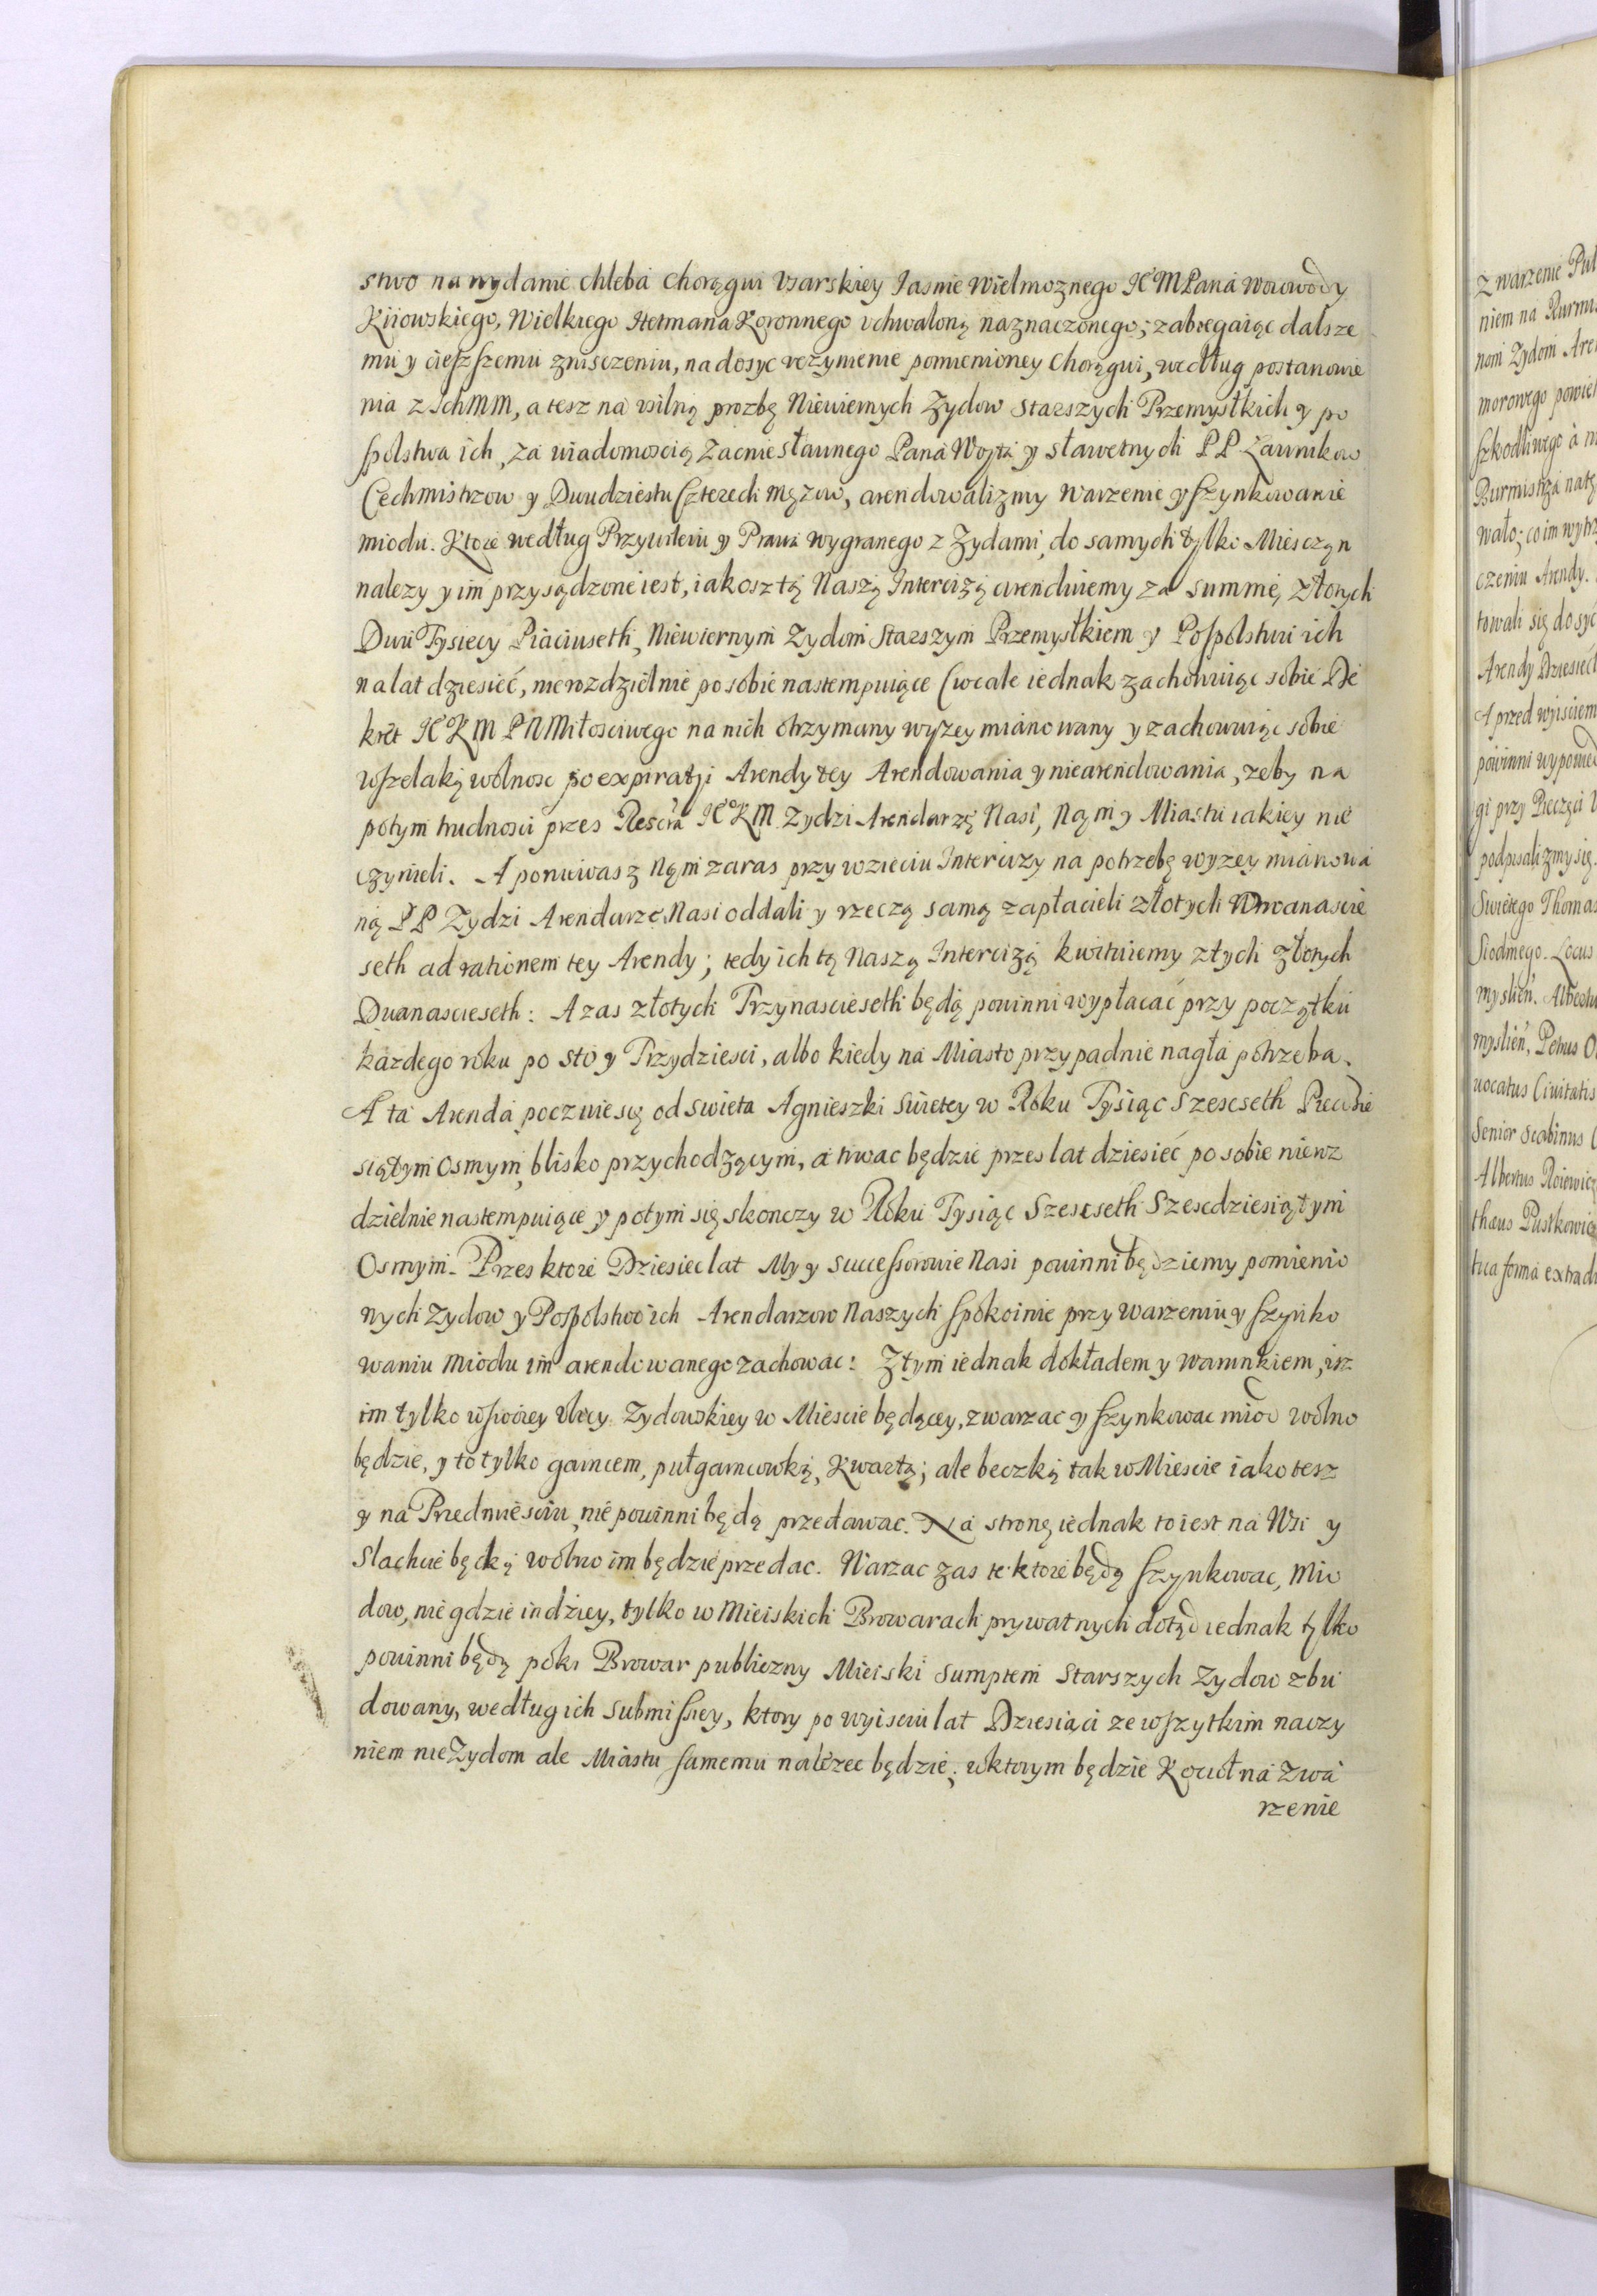 stwo na wydanie chleba Chorągwi Vsarskiey Iasnie Wielmoznego JE°M Pana Woiewody
Kiiowskiego, Wielkiego Hetmana Koronnego vchwaloną naznaczonego; zabiegaiąc dalsze
mu y cieszszemu znisczeniu, na dosyc vczynienie pomienioney Chorągwi, według postanowie
nia z IchMM, a tesz na vsilną prozbę Niewiernych Zydow Starszych Przemyskich y po
spolstwa ich, za wiadomoscią Zacnie sławnego Pana Woyta y sławetnych PP Ławnikow
Cechmistrzow y Dwudziestu Czterech Męzow, arendowalizmy Warzenie y szynkowanie
miodu. Ktore według Przywileiu y Prawa wygranego z Zydami, do samych tylko Miesczan
nalezy y im przysądzone iest, iakosz tą Naszą Intercizą arenduiemy za summę złotych
Dwu Tysięcy Piąciuseth, Niewiernym Zydom Starszym Przemyskiem y Pospolstwu ich
na lat dziesięć, nierozdzielnie po sobie nastempuiące (wcale iednak zachowuiąc sobie De
kret JE°KM PNMiłosciwego na nich otrzymany wyzey mianowany y zachowuiąc sobie
wszelaką wolnosc po expiratji Arendy tey Arendowania y niearendowania, zeby na
potym trudnosci przes Rescra JE°KM Zydzi Arendarzę Nasi, Nąm y Miastu iakiey nie
czynieli. A poniewasz Nąm zaras przy wzięciu Intercizy na potrzebę wyzey mianowa
ną PP Zydzi Arendarze Nasi oddali y rzeczą samą zapłacieli złotych Dwanascie
seth ad rationem tey Arendy; tedy ich tą Naszą Intercizą kwituiemy z tych złotych
Dwanascieseth: A zas złotych Trzynascieseth będą powinni wypłacać przy początku
kazdego roku po sto y Trzydziesci, albo kiedy na Miasto przypadnie nagła potrzeba.
A ta Arenda pocznie się od Swieta Agnieszki Swietey w Roku Tysiąc Szescseth Pięcdzie
siątym Osmym blisko przychodzącym, a trwac będzie przes lat dziesięć po sobie nieroz
dzielnie nastempuiące y potym się skonczy w Roku Tysiąc Szescseth Szescdziesiątym
Osmym. Przes ktore Dziesięc lat My y Successorowie Nasi powinni będziemy pomienio
nych Zydow y Pospolstwo ich Arendarzow Naszych spokoinie przy warzeniu y szynko
waniu Miodu im arendowanego zachowac: Z tym iednak dokładem y warunkiem, isz
im tylko w swoiey vlicy Zydowskiey w Miescie będącey, zwarzac y szynkowac miod wolno
będzie, y to tylko garncem, pułgarncowką, Kwartą; ale beczką tak w Miescie iako tesz
y na Przedmiesciu, nie powinni będą przedawac. Na stronę iednak to iest na Wsi y
Slachcie bęcką wolno im będzie przedac. Warzac zas te ktore będą szynkowac, Mio
dow, nie gdzie indziey, tylko w Mieiskich Browarach prywatnych dotąd iednak tylko
powinni będą poki Browar publiczny Mieiski Sumptem Starszych Zydow zbu
dowany, według ich Submissiey, ktory po wyisciu lat Dziesiąci ze wszytkim naczy
niem nie Zydom ale Miastu samemu nalezec będzie; w ktorym będzie Kocioł na Zwa
rzenie